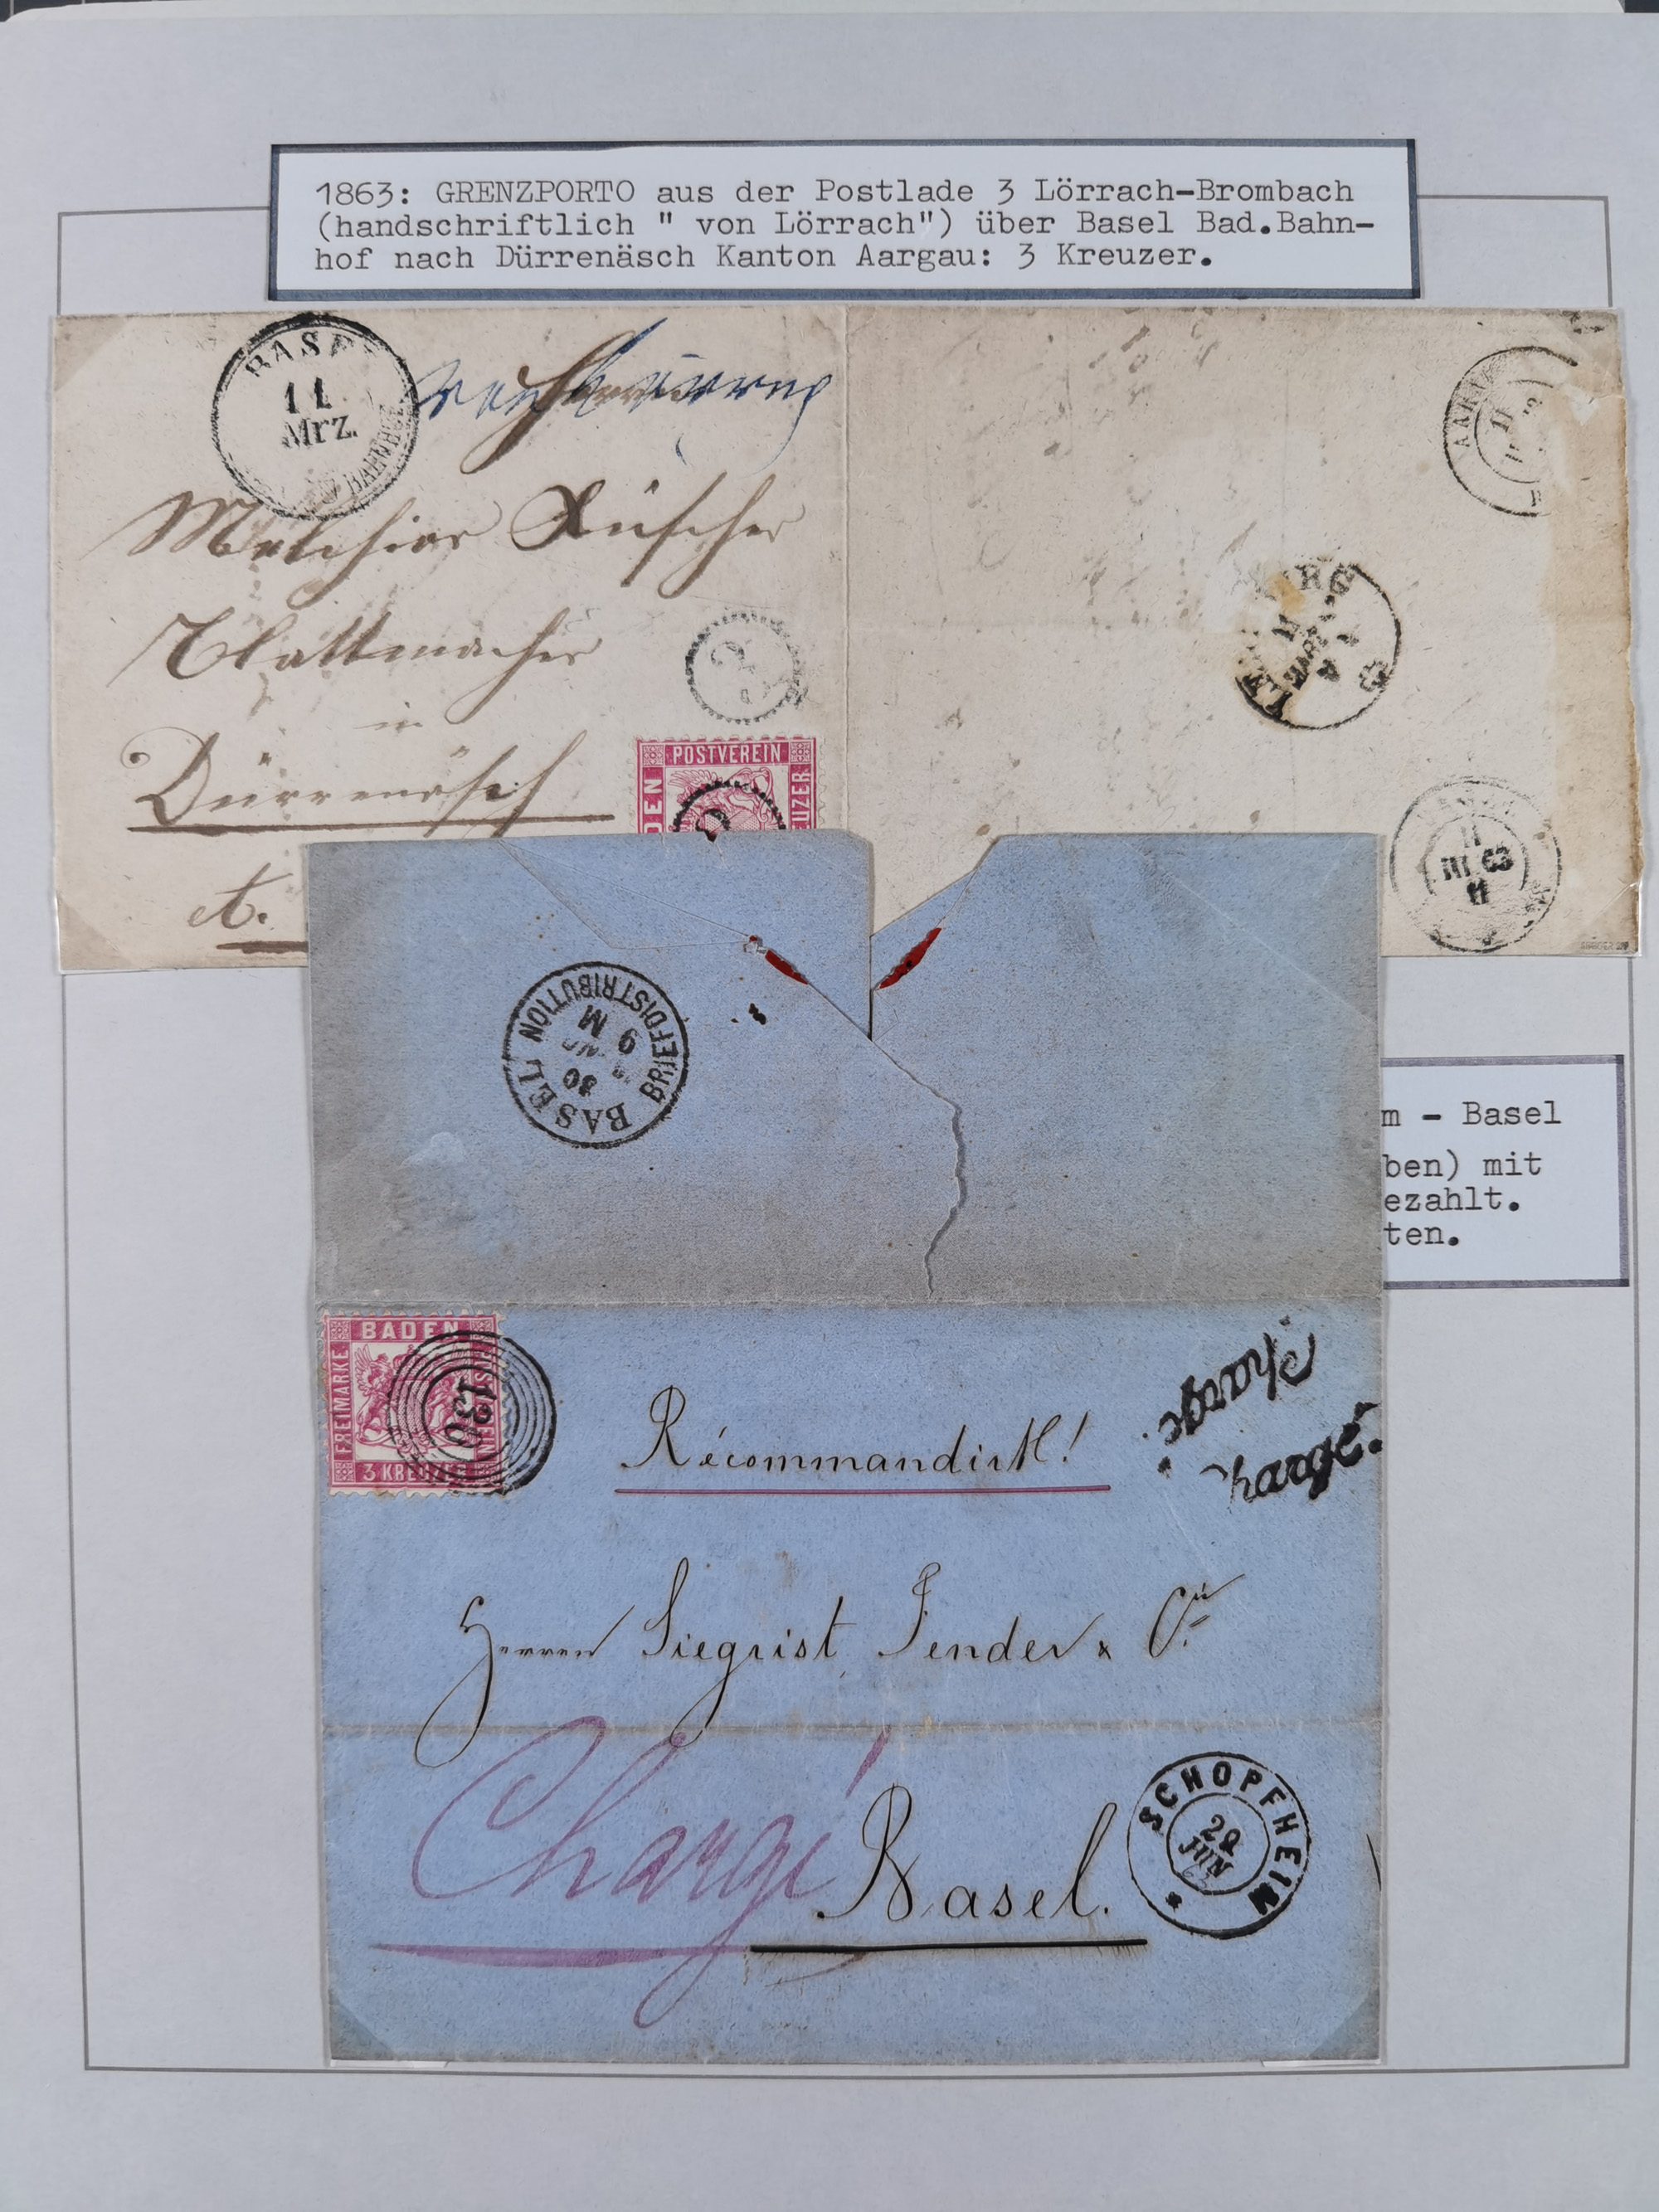 1863: GRENZPORTO aus der Postlade 3 Lörrach-Brombach
(handschriftlich " von Lörrach") über Basel Bad.Bahn-
hof nach Dürrenäsch Kanton Aargau: 3 Kreuzer.
BASEL
11
Mrz.
BAHNHOF
Melchior
Blattmacher
in
Dürrenäsch
POSTVEREIN
DEN
EUZER
AAR
11
RG
11
MARZ
11
III 63
11
BASEL
BRIEFDISTRIBUTION
30
9 M
m - Basel
ben) mit
ezahlt.
ten.
BADEN
FREIMARKE
3 KREUZER
130
Récommandirt!
Chargé.
Chargé.
Herren Siegrist Fender & Cie
Chargé
Basel.
SCHOPFHEIM
29
JUN